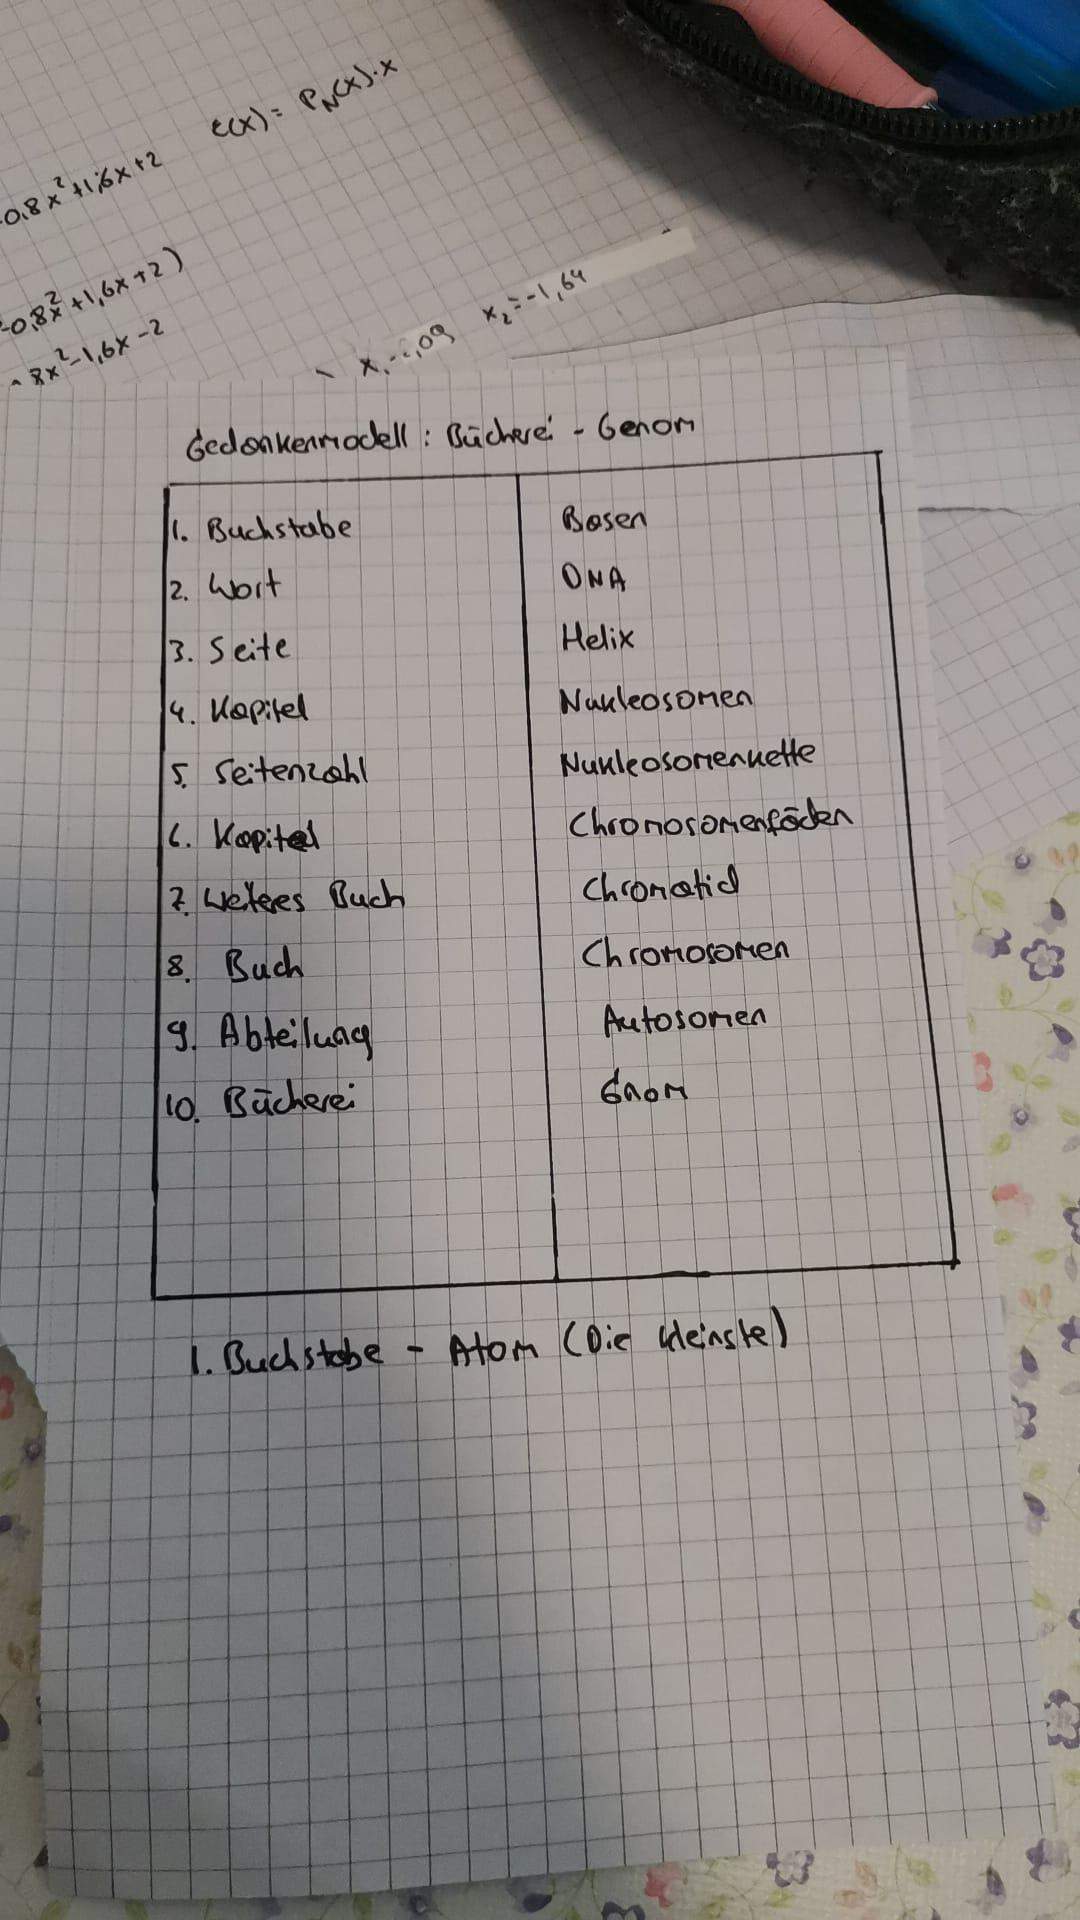 E(x) = PN(x)·x
-0,8x²+1,6x+2
-0,8x²+1,6x+2)
8x²-1,6x-2
x₂=-1,64
Gedankenmodell : Bücherei - Genom
1. Buchstabe Basen
2. Wort DNA
3. Seite Helix
4. Kapitel Nukleosomen
5. Seitenzahl Nukleosomenkette
6. Kapitel Chromosomenfäden
7. Weteres Buch Chromatid
8. Buch Chromosomen
9. Abteilung Autosomen
10. Bücherei Gnom
1. Buchstabe - Atom (Die kleinste)